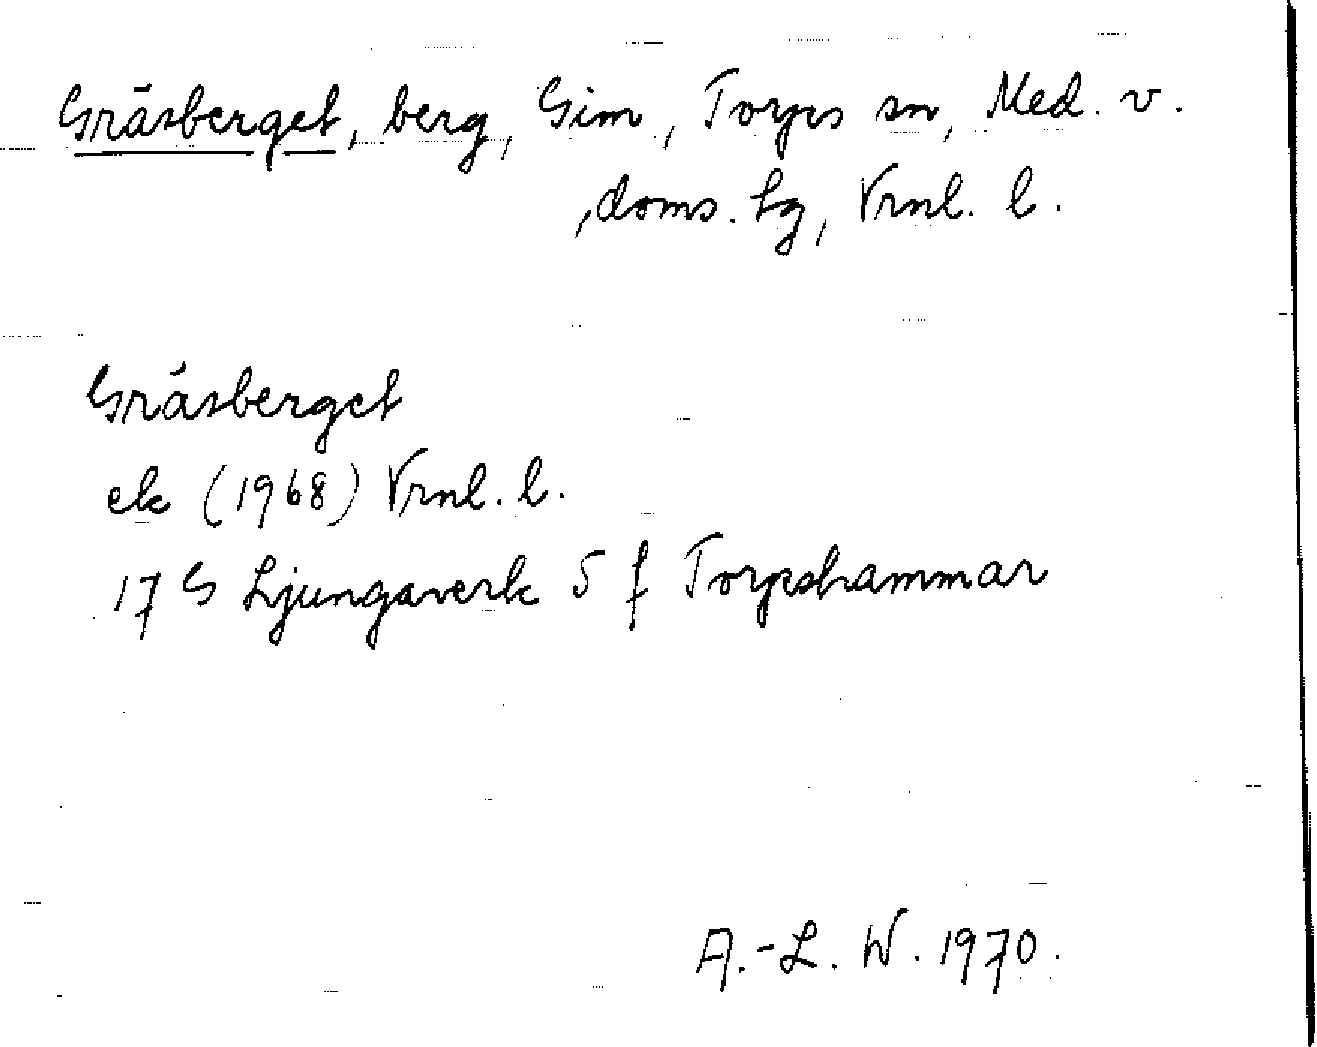 Gräsberget, berg, Gim, Torps sn, Med. v.
doms. hg, Vrnl. l.
Gräsberget
ek (1968) Vrnl. l.
17 G Ljungaverk 5 f Torpshammar
A.-L. W. 1970.